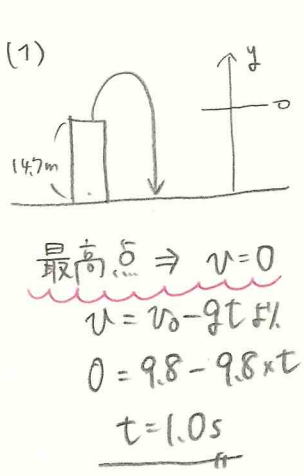 (1)
y
0
14.7m
最高点 ⇒ v=0
v=v₀-gtより
0=9.8-9.8×t
t=1.0s